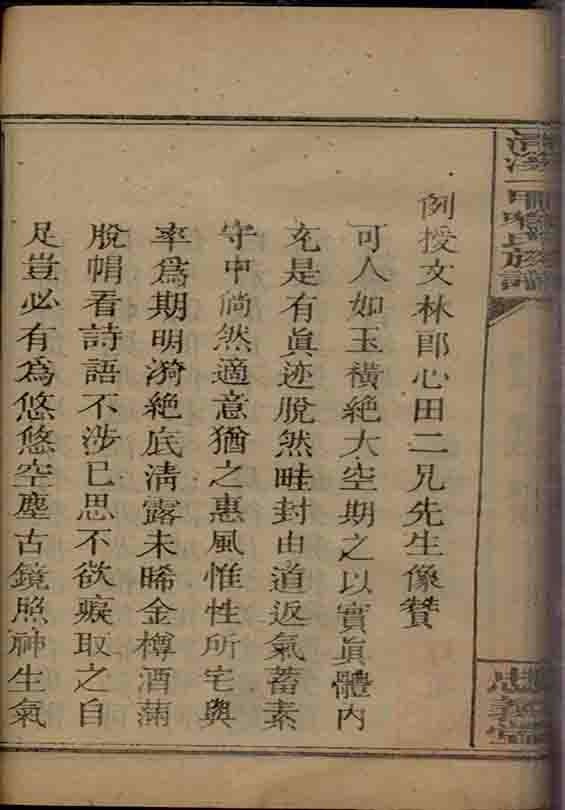 氏族譜
忠義堂
例授文林郎心田二兄先生像贊
可人如玉橫絶大空期之以實眞體內
充是有眞迹脫然畦封由道返氣蓄素
守中倘然適意猶之惠風惟性所宅與
率爲期明漪絶底淸露未晞金樽酒滿
脫帽看詩語不涉已思不欲癡取之自
足豈必有爲悠悠空塵古鏡照神生氣